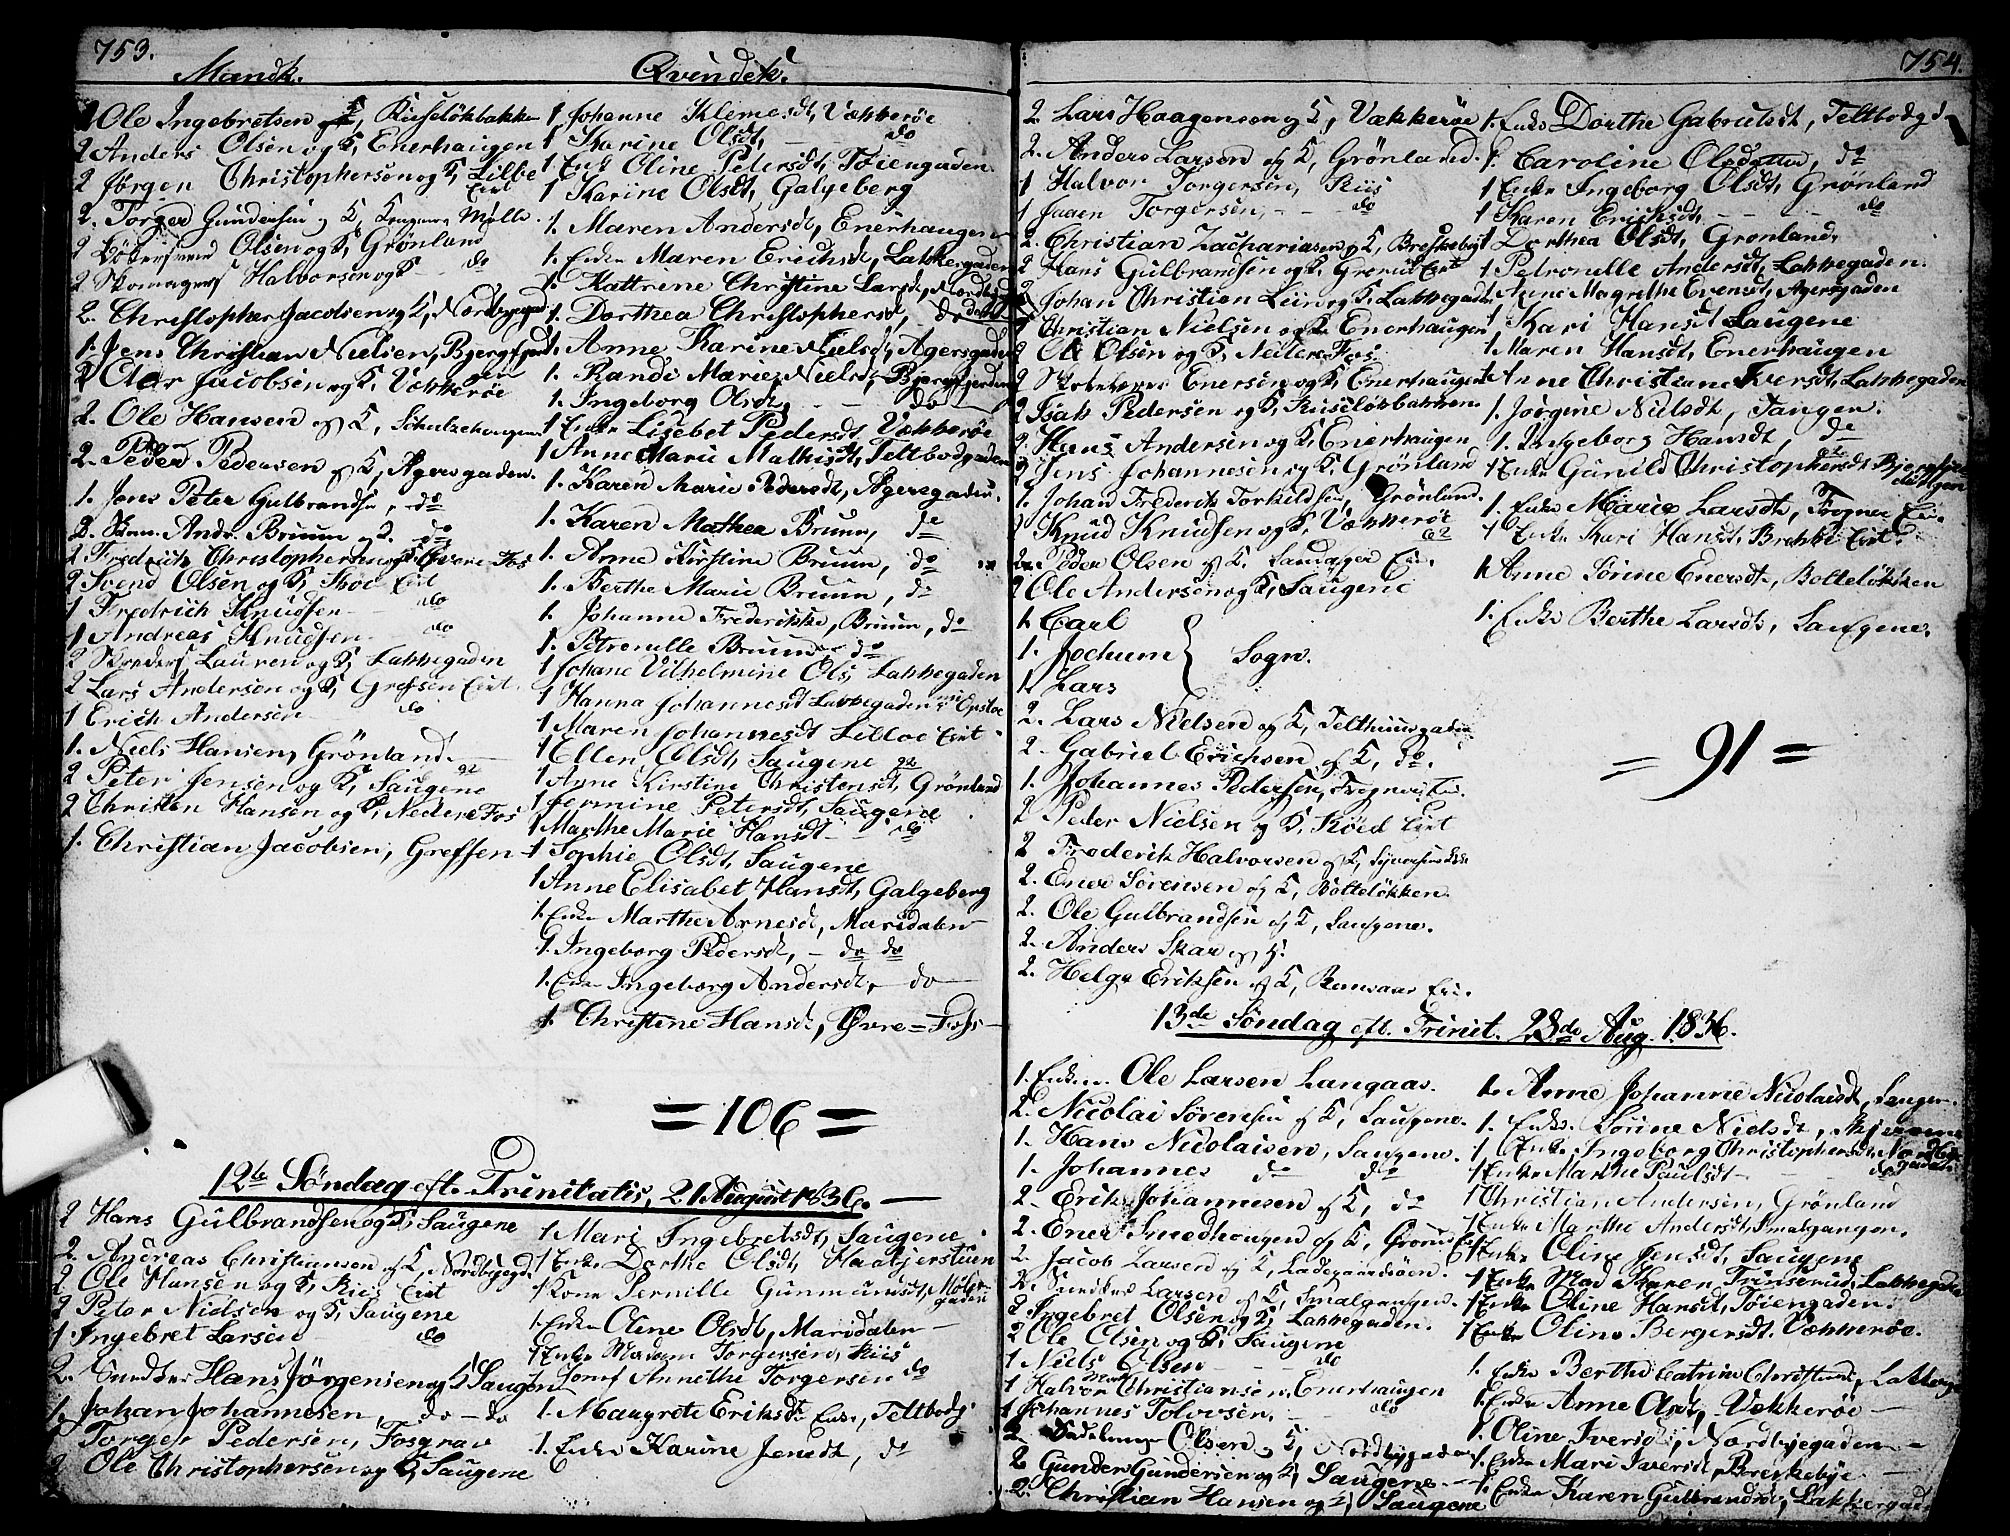 753.
Mandk.
Qvindek.
2 Ole Ingebretsen
2 Anders Olsen og K, Enerhaugen
2 Jørgen Christophersen og K, Lilbe
2. Torger Gundersen og K,
2 Olsen og K, Grønland
2 Skomagers Halvorsen og K do
2. Christopher Jacobsen og K, Nordbygad
1. Jens Christian Nielsen, Bjergfjerd
2 Jacobsen og K, Vækkerøe
2. Ole Hansen og K,
2. Peder Pedersen og K, Agersgaden.
1. Jens Peter Gulbrands, do
2. Andr. Bruun og do
2. Frederich Christophersen Øvere Fos
2 Svend Olsen og K, Eiet
1 Fredrich Knudsen do
1 Andreas Knudsen do
2 Lauren og K, Lakkegaden
2 Lars Andersen og K, Grefsen Eiet.
1 Erich Andersen do
1. Niels Hansen, Grønland.
2 Peter Jensen og K, Saugene
2 Christen Hansen og K, Nedere Fos
1. Christian Jacobsen, Greffen
1. Johanne Klemesdt, Vækkerøe
1. Karine Olsdt, do
1 Enke Oline Pedersdt, Tøiengaden.
1 Karine Olsdt, Galgeberg
1. Maren Andersdt, Enerhaugen
1. Enke Maren Erichsdt, Lakkegaden
1. Kattrine Christine Larsd,
1. Dorthea Christophersd, do
1. Anne Karine Nielsd, Agersgaden
1. Randi Marie Nielsd, Bjergfjerden
1. Ingeborg Olsdt, do
1 Enke Lisebet Pedersdt, Vækkerøe
1 Anne Marie Mathisdt, Teltbodgaden
1. Karen Marie Pedersdt, Agersgaden.
1. Karen Mathea Bruun, do
1. Anne Kirstine Bruun, do
1. Berthe Marie Bruun, do
1. Johanne Frederikke, Bruun, do
1. Petronelle Bruun do
1 Johane Vilhelmine Ols, Lakkegaden
1 Hanna Johannesdt Lakkegaden
1 Maren Johannesdt Lilloe Eiet
1 Ellen Olsdt, Saugene
1 Anne Kirstine Christensdt, Grønland
1 Jermine Petersdt, Saugene
1 Marthe Marie Hansdt do
1 Sophie Olsdt, Saugene
1 Anne Elisabet Hansdt, Galgeberg
1. Enke Marthe Arnesdt, Maridalen
1. Ingeborg Pedersdt, do do
1. Enke Ingeborg Andersdt, do
1. Christine Hansdt, Øvre=Foss
= 106 =
12te Søndag eft. Trinitatis, 21 August 1836.
2 Hans Gulbrandsen og K, Saugene
2. Andreas Christiansen og K, Nordbygd
2 Ole Hansen og K, Riis Eiet
2 Peter Nielsen og K, Saugene
1 Ingebret Larsen do
2. Hans Jørgensen og K Saugen
1. Johan Johannesen, do do
1 Torger Pedersen, Fosgrav
2 Ole Christophersen og K, Saugene
1 Mari Ingebretsdt, Saugene
1 Enke Dorthe Olsdt, Haabjerstuen
1 Kone Pernille Gunmundsdt, Møllergaden
1. Enke Oline Olsdt, Maridalen
1 Enke Madam Torgersen, Riis
1 Jomf Annethe Torgersen do
1. Maugrete Eriksdt Enke, Teltbodg
1. Enke Karine Jensdt, do
754.
2. Lars Haagensen og K, Vækkerøe
2. Anders Larsen og K, Grønland.
1 Halvor Torgersen, Riis
1 Torgersen, do
2. Christian Zachariasen og K, Breskebye
2 Hans Gulbrandsen og K, Eiet
2 Johan Christian Lein og K, Lakkegaden
2 Christian Nielsen og K Enerhaugen
2 Ole Olsen og K, Nedere Fos
2 Enersen og K, Enerhaugen
2 Isak Pedersen og K, Ruseløkbakken.
2. Hans Andersen og K, Enerhaugen
2 Jens Johannesen og K, Grønland
1. Johan Frederik Torkildsen, Grønland.
2 Knud Knudsen og K, Vækkerøe
2. Peder Olsen og K,
2 Ole Andersen og K, Saugene
1. Carl
1. Jochum } Sogn.
1. Lars
2. Lars Nielsen og K, Telthuusgaden
2. Gabriel Erichsen og K, do.
1. Johannes Pedersen, Frogner Ei.
2 Peder Nielsen og K, Røed Eiet
2 Frederik Halvorsen og K,
2. Ener Sørensen og K, Bolteløkken.
2. Ole Gulbrandsen og K, Saugene.
2. Anders Skar og K.
2. Helge Eriksen og K,
1. Enke Dorthe Gabrielsdt, Teltbodgd
1. Caroline Olsdatter, do
1 Enke Ingeborg Olsdt, Grønland
1 Karen Erichsdt, do
1 Dorthea Olsdt, Grønland.
1 Petronelle Andersdt, Lakkegaden.
1 Anne Magrethe Evensdt, Agersgaden
1. Kari Hansdt Saugene
1 Maren Hansdt, Enerhaugen
1 Anne Christiane Iversdt, Lakkegaden
1. Jørgine Nielsdt, Tangen.
1. Ingeborg Hansdt, do
1 Enke Gunild Christophersdt Bjergfjerdingen
1. Enke Marie Larsdt, Frogner Ei.
1 Enke Kari Hansdt, Brekke Eiet.
1. Anne Sørine Enersdt, Bolteløkken
1. Enke Berthe Larsdt, Saugene.
= 91 =
13de Søndag eft. Trinit. 28de Aug. 1836.
1. Enkem. Ole Larsen Langaas.
2. Nicolai Sørensen og K, Saugene.
1. Hans Nicolaisen, Saugene.
1. Johannes do do
2. Erik Johannesen og K, do
2. Ener Smedhougen og K,
2. Jacob Larsen og K, Ladegaardsøen.
2. Larsen og K, Smalgangen.
2 Ingebret Olsen og K, Lakkegaden.
2 Ole Olsen og K, Saugene
1 Niels Olsen do
1 Halvor Christiansen, Enerhaugen
1 Johannes Tolvsen, do
2. Olsen og K, Nordbyggaden
2 Gunder Gundersen og K, Saugene
2. Christian Hansen og K, Saugene
1. Anne Johanne Nicolaisdt, Saugen
1. Enke Lorine Nielsdt,
1 Enke Ingeborg Christophersdt, Nordbyegaden
1 Enke Marthe Paulsdt do
1 Christian Andersen, Grønland
1 Enke Marthe Andersdt, Smalgangen.
1 Enke Oline Jensdt, Saugene
1 Enke Mad Karen Lakkegade
1 Enke Oline Hansdt, Tøiengaden.
1 Enke Oline Bergersdt, Vækkerøe.
1. Enke Berthe Catrine Christensd, Lakkeg
1. Enke Anne Olsdt, Vækkerøe
1. Oline Iversdt, Nordbyegaden
1. Enke Mari Iversdt, Breskebye
1. Enke Karen Gulbrandsdt, Lakkegad